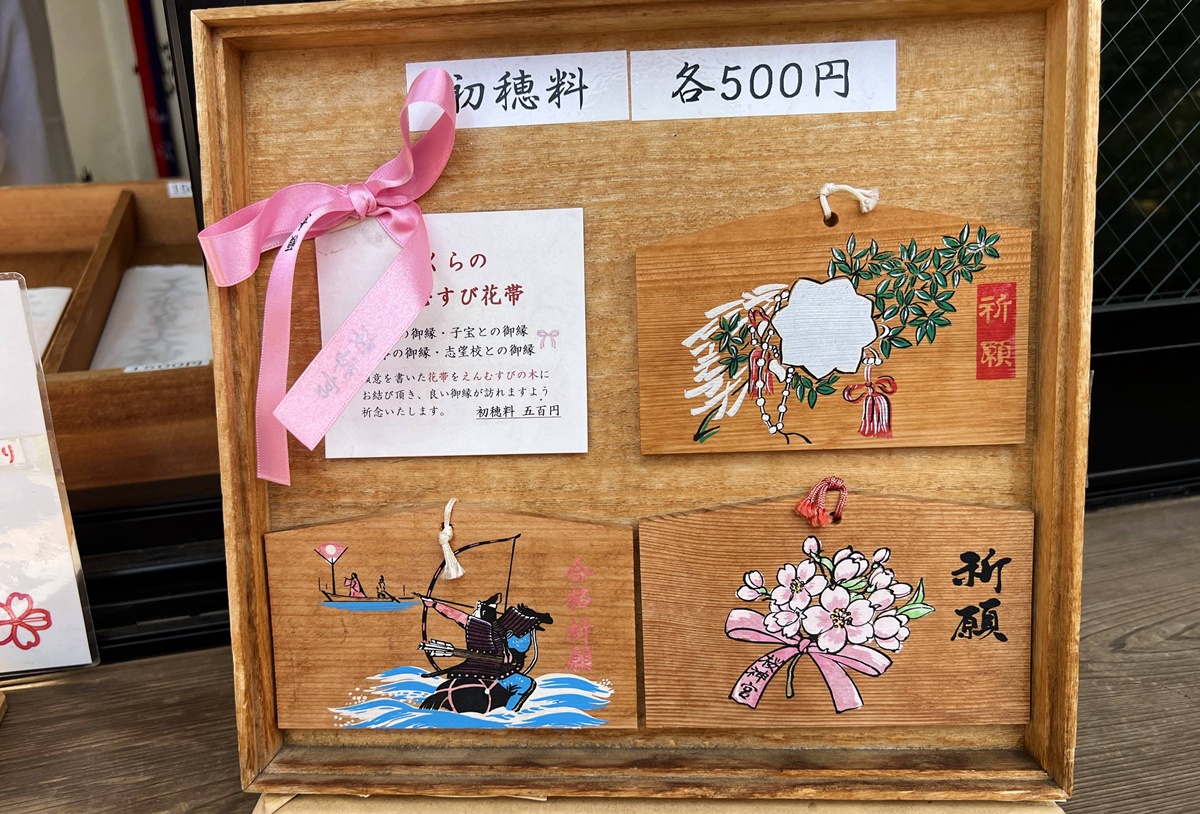 初穂料 各500円
くらの
すび花帯
の御縁・子宝との御縁
の御縁・志望校との御縁
意を書いた花帯をえんむすびの木に
お結び頂き、良い御縁が訪れますよう
祈念いたします。 初穂料 五百円
祈願
合格祈願
祈願
桜神宮
り